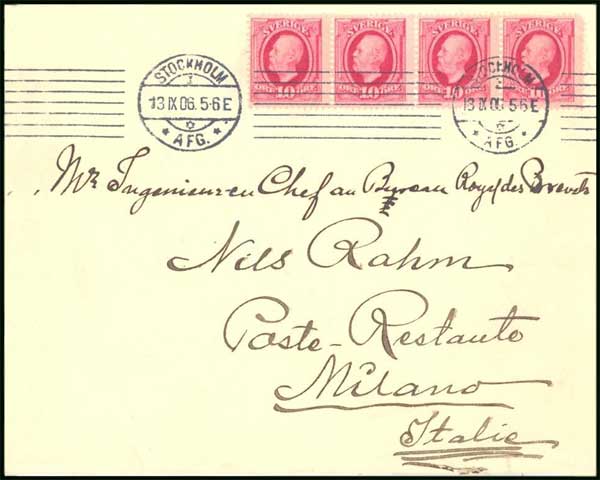 SVERIGE SVERIGE SVERIGE SVERIGE
10 ÖRE 10 ÖRE 10 ÖRE 10 ÖRE
STOCKHOLM
1
13 IX 06. 5-6 E
AFG.
STOCKHOLM
13 IX 06. 5-6 E
AFG.
Mr Ingenieur en Chef au Bureau Royal des Brevets
Nils Rahm
Poste-Restante
Milano
Italie